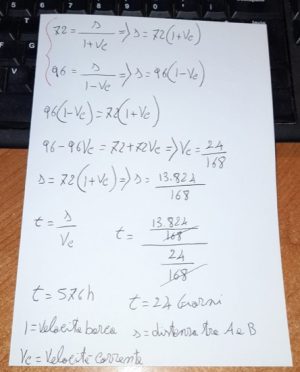 72 = s/(1+Vc) => s = 72(1+Vc)
96 = s/(1-Vc) => s = 96(1-Vc)
96(1-Vc) = 72(1+Vc)
96-96Vc = 72+72Vc => Vc = 24/168
s = 72(1+Vc) => s = 13.824/168
t = s/Vc t = (13.824/168)/(24/168)
t = 576h t = 24 Giorni
1 = Velocità barca s = distanza tra A e B
Vc = Velocità corrente